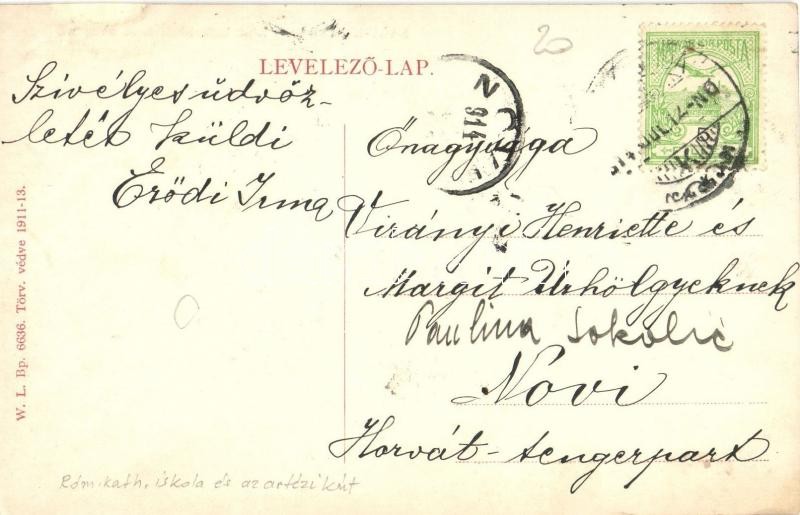 20
LEVELEZŐ-LAP.
MAGYAR KIR. POSTA
Szívélyes üdvöz-
letét küldi
Erődi Irma
N
914
Őnagysága
Virányi Henriette és
Margit Úrhölgyeknek
Paulina Sokolić
Novi
Horvát-tengerpart
W. L. Bp. 6636. Törv. védve 1911-13.
Róm. kath. iskola és az artézi kút